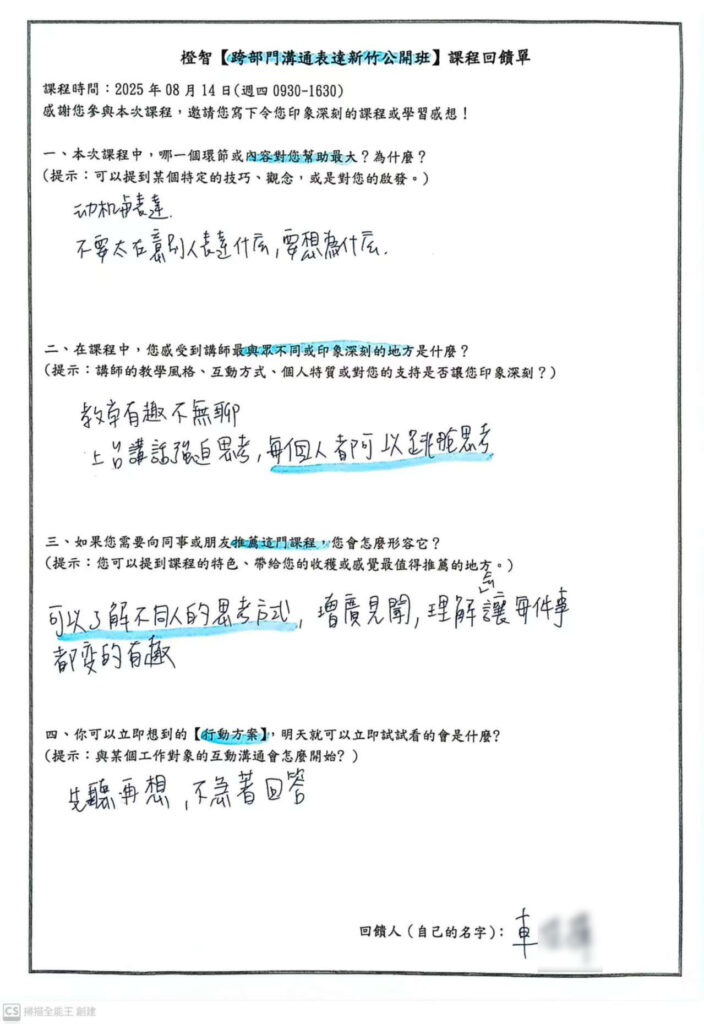 橙智【跨部門溝通表達新竹公開班】課程回饋單
課程時間：2025 年 08 月 14 日(週四 0930-1630)
感謝您參與本次課程，邀請您寫下令您印象深刻的課程或學習感想！
一、本次課程中，哪一個環節或內容對您幫助最大？為什麼？
(提示：可以提到某個特定的技巧、觀念，或是對您的啟發。)
动机與表達.
不要太在意別人表達什麼，要想為什麼.
二、在課程中，您感受到講師最與眾不同或印象深刻的地方是什麼？
(提示：講師的教學風格、互動方式、個人特質或對您的支持是否讓您印象深刻？)
教學有趣不無聊
上台講話強迫思考，每個人都可以跳脫思考
三、如果您需要向同事或朋友推薦這門課程，您會怎麼形容它？
(提示：您可以提到課程的特色、帶給您的收穫或感覺最值得推薦的地方。)
可以了解不同人的思考方式，增廣見聞，理解會讓每件事
都变的有趣
四、你可以立即想到的【行動方案】，明天就可以立即試試看的會是什麼?
(提示：與某個工作對象的互動溝通會怎麼開始? )
先聽再想，不急著回答
回饋人（自己的名字）： 車
CS 掃描全能王 創建